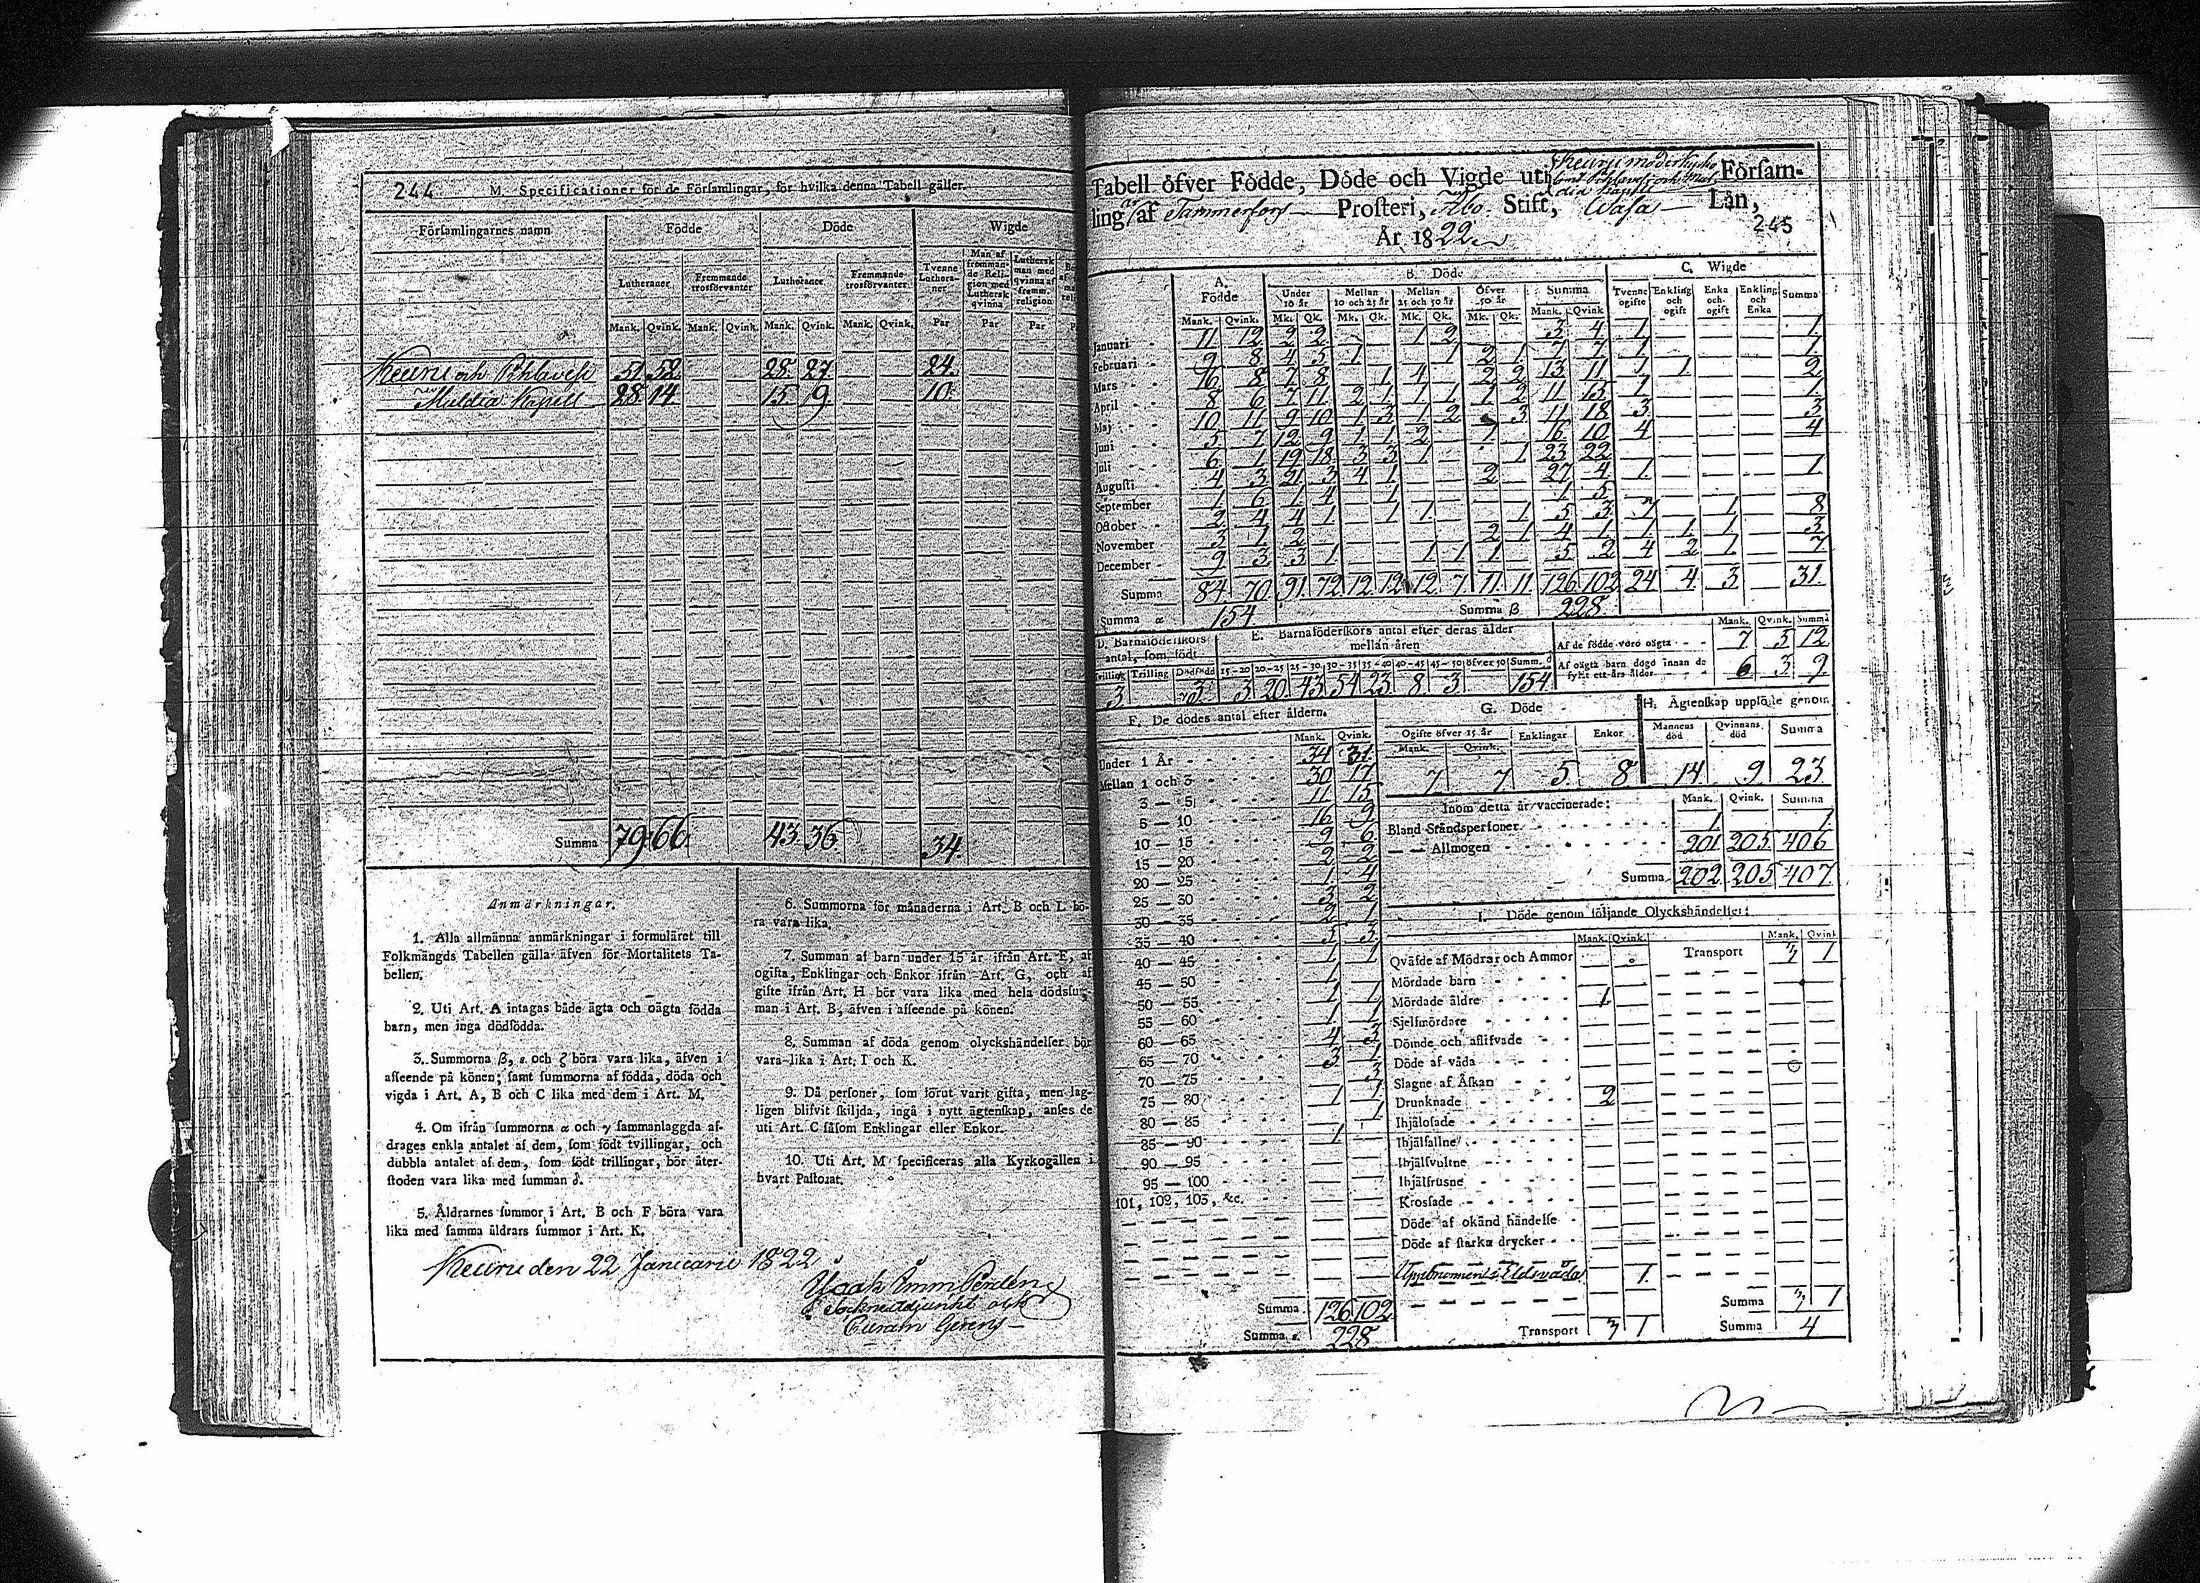 244. M. Specificationer för de Församlingar, för hvilka denna Tabell gäller.
Församlingarnes namn Födde Döde Wigde
Lutheraner Fremmande trosförvanter Lutheraner Fremmande trosförvanter Tvenne Lutheraner Man af fremmande Religion med Luthersk qvinna Luthersk man med qvinna af fremm. religion
Mank. Qvink. Mank. Qvink. Mank. Qvink. Mank. Qvink. Par Par Par
Keuru och Pihlavesi 51. 52. 28. 27. 24.
Muldia Kapell 28 14 15 9 10.
Summa 79 66 43. 36. 34.
Anmärkningar.
1. Alla allmänna anmärkningar i formuläret till
Folkmängds Tabellen gälla äfven för Mortalitets Ta-
bellen.
2. Uti Art. A intagas både ägta och oägta födda
barn, men inga dödfödda.
3. Summorna β, ε och ζ böra vara lika, äfven i
afseende på könen; samt summorna af födda, döda och
vigda i Art. A, B och C lika med dem i Art. M.
4. Om ifrån summorna α och γ sammanlaggda af-
drages enkla antalet af dem, som födt tvillingar, och
dubbla antalet af dem, som födt trillingar, bör åter-
stoden vara lika med summan δ.
5. Åldrarnes summor i Art. B och F böra vara
lika med samma åldrars summor i Art. K.
6. Summorna för månaderna i Art. B och L bö-
ra vara lika.
7. Summan af barn under 15 år ifrån Art. F, af
ogifta, Enklingar och Enkor ifrån Art. G, och af
gifte ifrån Art. H bör vara lika med hela dödssum-
man i Art. B, äfven i afseende på könen.
8. Summan af döda genom olyckshändelser bör
vara lika i Art. I och K.
9. Då personer, som förut varit gifta, men lag-
ligen blifvit skiljda, ingå i nytt ägtenskap, anses de
uti Art. C såsom Enklingar eller Enkor.
10. Uti Art. M specificeras alla Kyrkogällen i
hvart Pastorat.
Keuru den 22 Januarii 1822
Tabell öfver Födde, Döde och Vigde uti Keuru moderkyrko Församling af Tammerfors Prosteri, Åbo Stift, Wasa Län,
År 1822
245
A. Födde B. Döde C. Wigde
Under 10 år Mellan 10 och 25 år Mellan 25 och 50 år Öfver 50 år Summa Tvenne ogifte Enkling och ogift Enka och ogift Enkling och Enka Summa
Mank. Qvink. Mk. Qk. Mk. Qk. Mk. Qk. Mk. Qk. Mank. Qvink
Januari 11 12 2 2 1 2 3 4 1 1
Februari 9 8 4 5 1 1 2 1 7 7 1 1
Mars 16 8 7 8 1 4 2 2 13 11 1 1 2
April 8 6 7 11 2 1 1 1 1 2 11 15 1 1
Maj 10 11 9 10 1 3 1 2 3 11 18 3 3
Juni 5 7 12 9 1 1 2 1 16 10 4 4
Juli 6 1 19 18 3 3 1 1 23 22
Augusti 4 3 21 3 4 1 2 27 4 1 1
September 1 6 1 4 1 1 5
October 2 4 4 1 1 1 1 5 3 7 1 8
November 3 1 2 2 1 4 1 1 1 1 3
December 9 3 3 1 1 1 1 5 2 4 2 1 7
Summa 84 70 91 72 12 12 12 7 11 11 126 102 24 4 3 31
Summa α 154 Summa β 228
D. Barnaföderskors antal, som födt
Trilling Dödfödd
3 3
E. Barnaföderskors antal efter deras ålder mellan åren
15-20 20-25 25-30 30-35 35-40 40-45 45-50 öfver 50 Summ. δ
3 20 43 54 23 8 3 154
Mank. Qvink. Summa
Af de födde voro oägta 7 5 12
Af oägta barn dogo innan de fyllt ett års ålder 6 3 9
F. De dödes antal efter åldern.
Mank. Qvink.
Under 1 År 34 31
Mellan 1 och 3 30 17
3 — 5 11 15
5 — 10 16 9
10 — 15 9 6
15 — 20 2 2
20 — 25 1 4
25 — 30 3 2
30 — 35 2 1
35 — 40 5 3
40 — 45 1 1
45 — 50 1
50 — 55 1 1
55 — 60 1 1
60 — 65 4 3
65 — 70 3 1
70 — 75 3
75 — 80 1 1
80 — 85 1
85 — 90 1
90 — 95
95 — 100
101, 102, 103, &c.
Summa 126 102
Summa ε. 228
G. Döde
Ogifte öfver 15 år Enklingar Enkor
Mank. Qvink.
7 7 5 8
H. Ägtenskap upplöste genom
Mannens död Qvinnans död Summa
14 9 23
Inom detta år vaccinerade: Mank. Qvink. Summa
Bland Ståndspersoner 1 1
— — Allmogen 201 205 406
Summa 202 205 407
I. Döde genom följande Olyckshändelser:
Mank. Qvink. Mank. Qvink
Qväfde af Mödrar och Ammor Transport 3 1
Mördade barn
Mördade äldre 1
Sjelfmördare
Dömde och aflifvade
Döde af våda
Slagne af Åskan
Drunknade 2
Ihjälosade
Ihjälfallne
Ihjälsvultne
Ihjälfrusne
Krossade
Döde af okänd händelse
Döde af starka drycker
Uppbrunnen i Eldsvåda 1
Summa 3 1
Transport 3 1 Summa 4